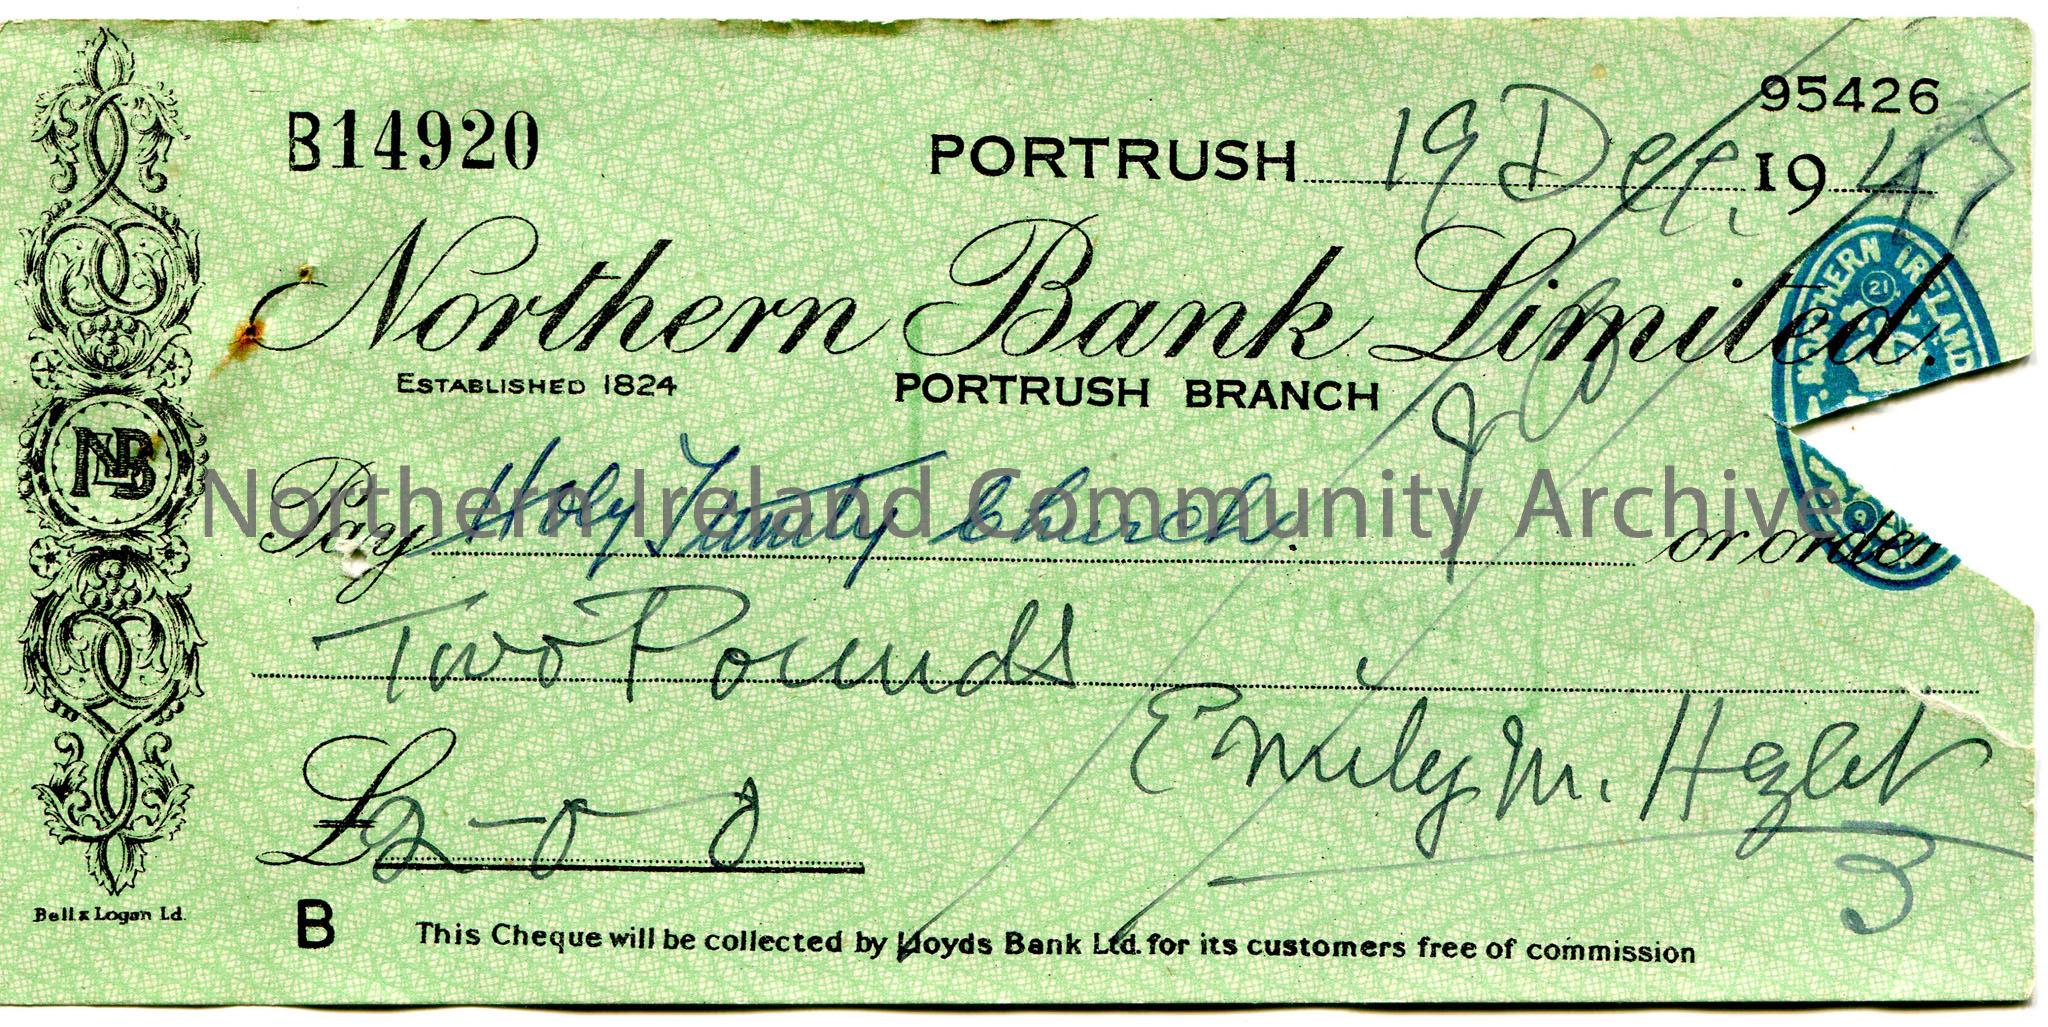 95426
B14920
PORTRUSH 19 Dec. 1947
Northern Bank Limited.
ESTABLISHED 1824 PORTRUSH BRANCH
NORTHERN IRELAND
21
NLB
Pay Holy Trinity Church. or order
Northern Ireland Community Archive
Two Pounds
Emily M. Hezlet
£2-0-0
3
Bell & Logan Ld.
B This Cheque will be collected by Lloyds Bank Ltd. for its customers free of commission